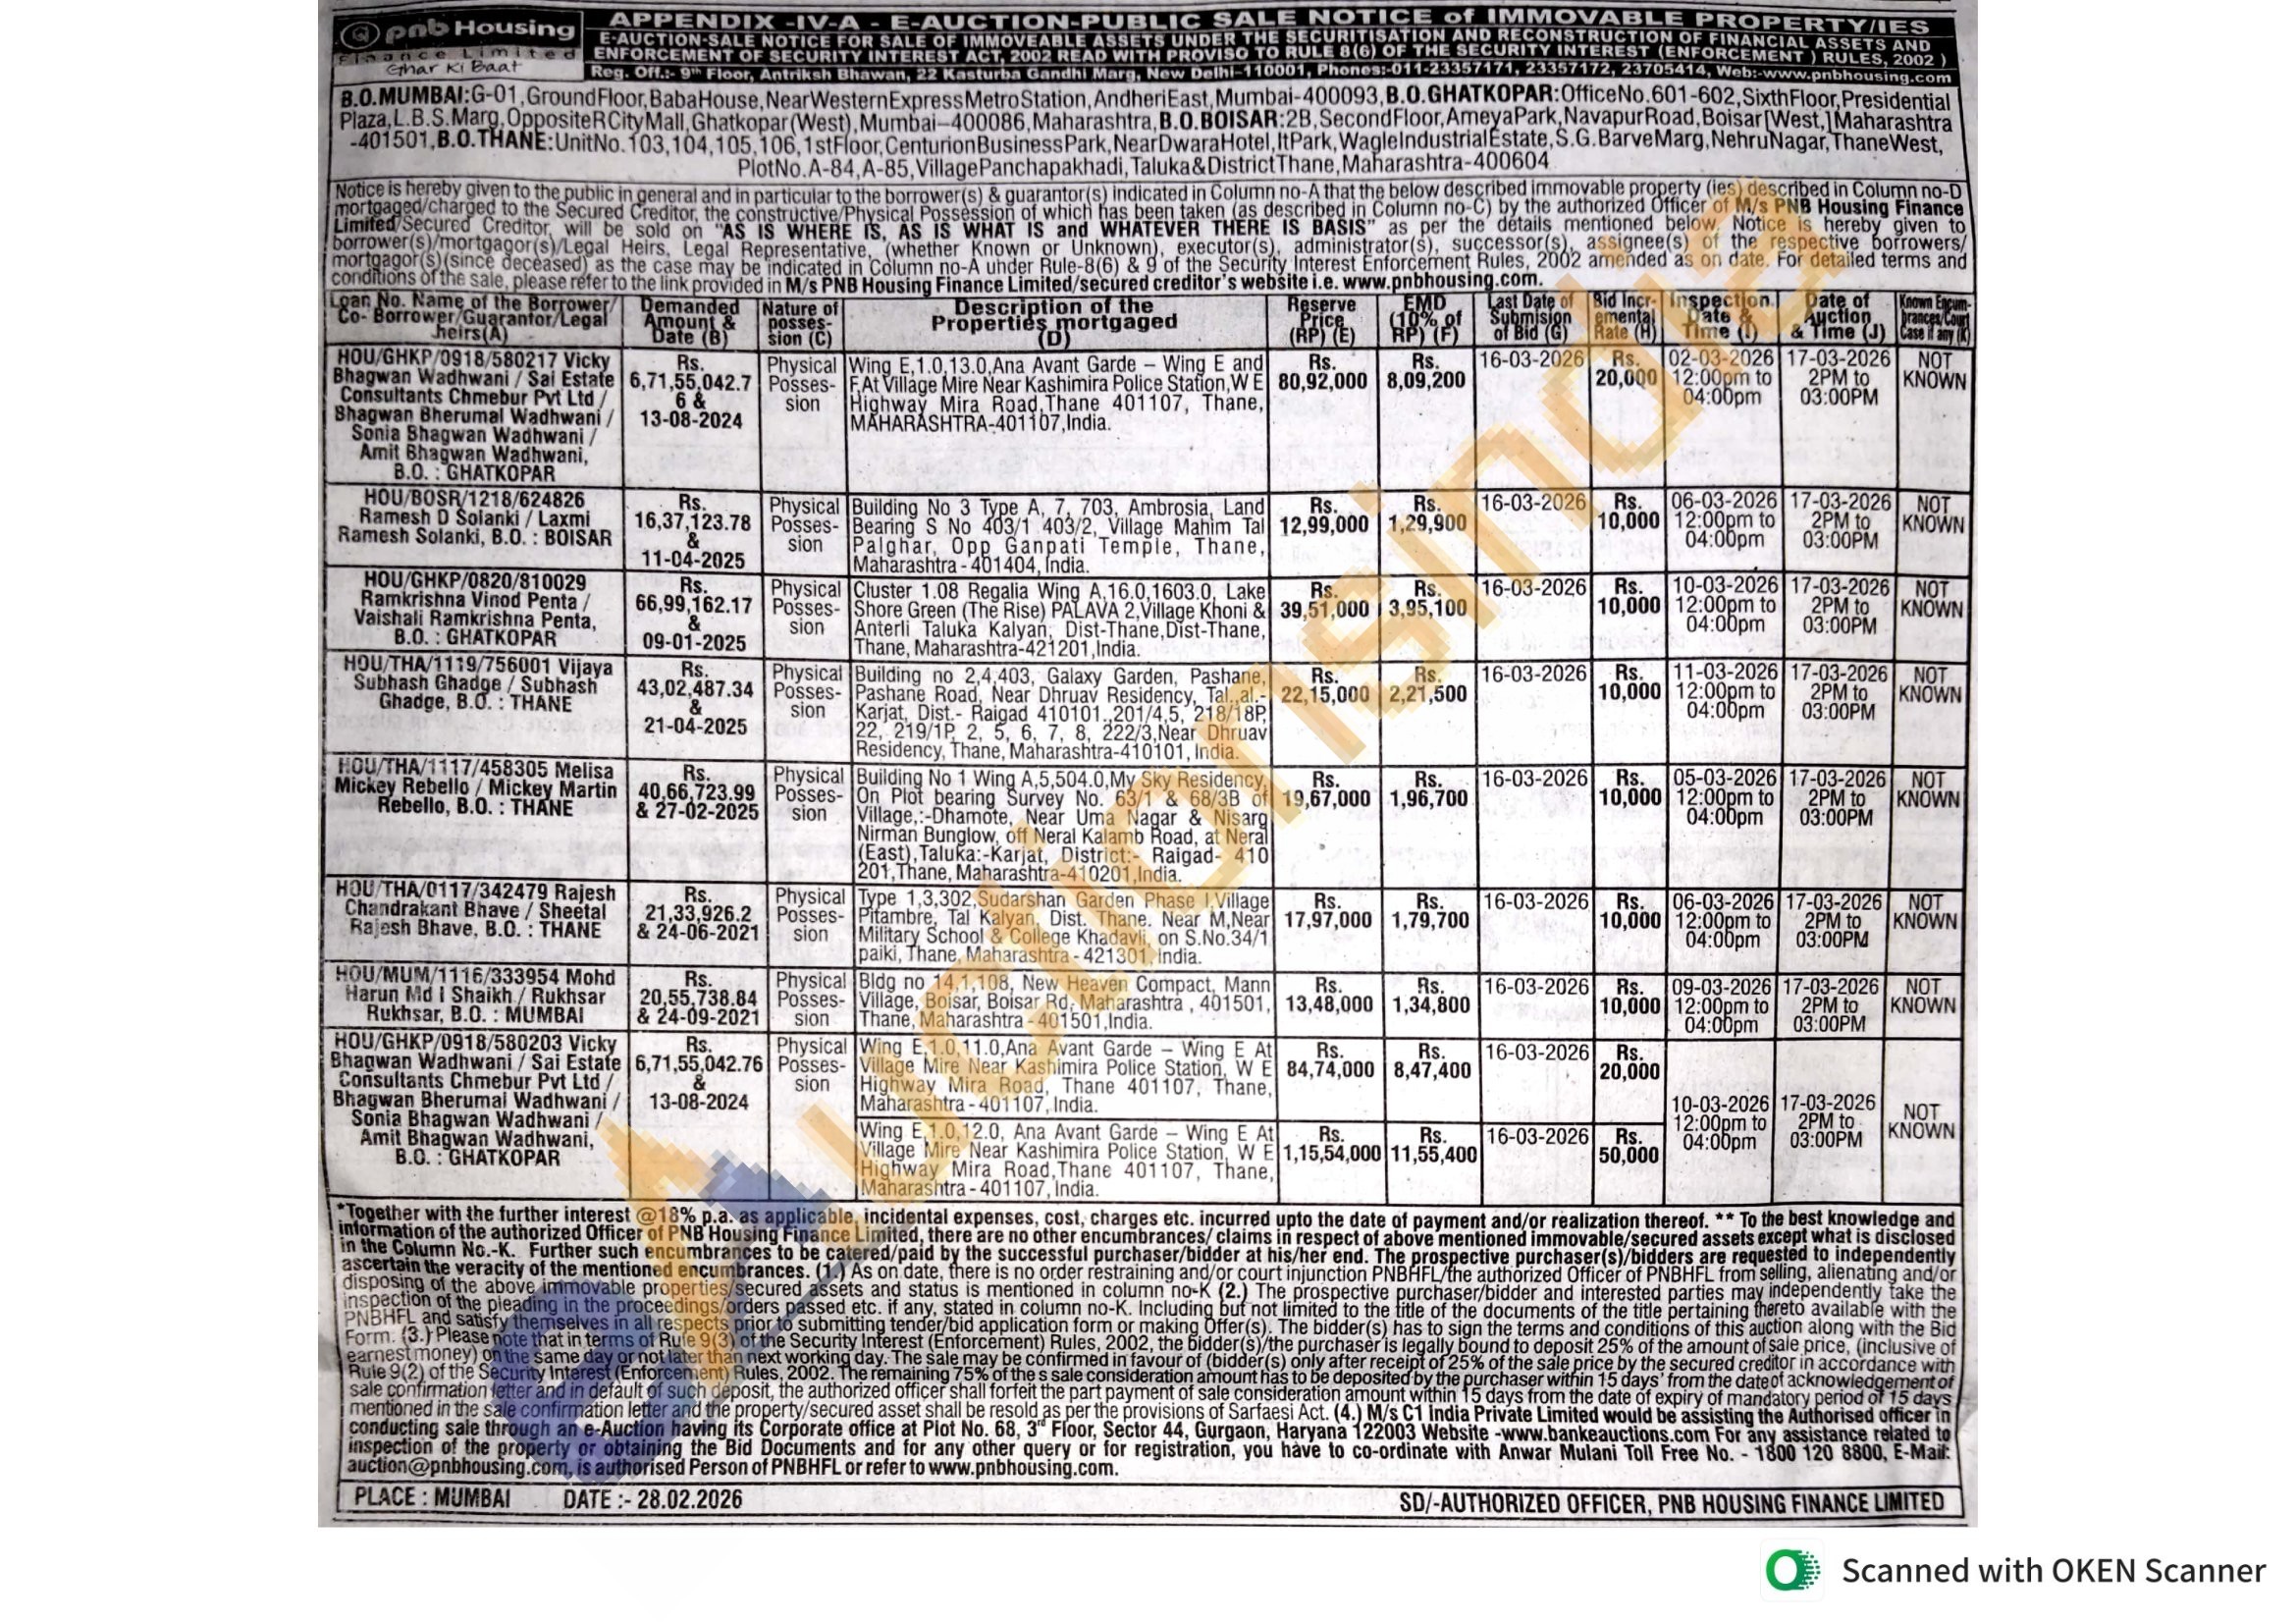 pnb Housing
Finance Limited
Ghar Ki Baat
APPENDIX -IV-A - E-AUCTION-PUBLIC SALE NOTICE of IMMOVABLE PROPERTY/IES
E-AUCTION-SALE NOTICE FOR SALE OF IMMOVEABLE ASSETS UNDER THE SECURITISATION AND RECONSTRUCTION OF FINANCIAL ASSETS AND
ENFORCEMENT OF SECURITY INTEREST ACT, 2002 READ WITH PROVISO TO RULE 8(6) OF THE SECURITY INTEREST (ENFORCEMENT ) RULES, 2002 )
Reg. Off.:- 9th Floor, Antriksh Bhawan, 22 Kasturba Gandhi Marg, New Delhi-110001, Phones:-011-23357171, 23357172, 23705414, Web:-www.pnbhousing.com
B.O.MUMBAI:G-01,GroundFloor,BabaHouse,NearWesternExpressMetroStation,AndheriEast,Mumbai-400093,B.O.GHATKOPAR:OfficeNo.601-602,SixthFloor,Presidential
Plaza,L.B.S.Marg,OppositeRCityMall,Ghatkopar(West),Mumbai–400086,Maharashtra,B.O.BOISAR:2B,SecondFloor,AmeyaPark,NavapurRoad,Boisar[West,]Maharashtra
-401501,B.O.THANE:UnitNo.103,104,105,106,1stFloor,CenturionBusinessPark,NearDwaraHotel,ItPark,WagleIndustrialEstate,S.G.BarveMarg,NehruNagar,ThaneWest,
PlotNo.A-84,A-85,VillagePanchapakhadi,Taluka&DistrictThane,Maharashtra-400604
Notice is hereby given to the public in general and in particular to the borrower(s) & guarantor(s) indicated in Column no-A that the below described immovable property (ies) described in Column no-D
mortgaged/charged to the Secured Creditor, the constructive/Physical Possession of which has been taken (as described in Column no-C) by the authorized Officer of M/s PNB Housing Finance
Limited/Secured Creditor, will be sold on "AS IS WHERE IS, AS IS WHAT IS and WHATEVER THERE IS BASIS" as per the details mentioned below. Notice is hereby given to
borrower(s)/mortgagor(s)/Legal Heirs, Legal Representative, (whether Known or Unknown), executor(s), administrator(s), successor(s), assignee(s) of the respective borrowers/
mortgagor(s)(since deceased) as the case may be indicated in Column no-A under Rule-8(6) & 9 of the Security Interest Enforcement Rules, 2002 amended as on date. For detailed terms and
conditions of the sale, please refer to the link provided in M/s PNB Housing Finance Limited/secured creditor's website i.e. www.pnbhousing.com.
Loan No. Name of the Borrower/
Co- Borrower/Guarantor/Legal
heirs(A)
Demanded
Amount &
Date (B)
Nature of
posses-
sion (C)
Description of the
Properties mortgaged
(D)
Reserve
Price
(RP) (E)
EMD
(10% of
RP) (F)
Last Date of
Submision
of Bid (G)
Bid Incr-
emental
Rate (H)
Inspection
Date &
Time (I)
Date of
Auction
& Time (J)
Known Encum-
brances/Court
Case if any (K)
HOU/GHKP/0918/580217 Vicky
Bhagwan Wadhwani / Sai Estate
Consultants Chmebur Pvt Ltd /
Bhagwan Bherumal Wadhwani /
Sonia Bhagwan Wadhwani /
Amit Bhagwan Wadhwani,
B.O. : GHATKOPAR
Rs.
6,71,55,042.7
6 &
13-08-2024
Physical
Posses-
sion
Wing E,1.0,13.0,Ana Avant Garde – Wing E and
F,At Village Mire Near Kashimira Police Station,W E
Highway Mira Road,Thane 401107, Thane,
MAHARASHTRA-401107,India.
Rs.
80,92,000
Rs.
8,09,200
16-03-2026
Rs.
20,000
02-03-2026
12:00pm to
04:00pm
17-03-2026
2PM to
03:00PM
NOT
KNOWN
HOU/BOSR/1218/624826
Ramesh D Solanki / Laxmi
Ramesh Solanki, B.O. : BOISAR
Rs.
16,37,123.78
&
11-04-2025
Physical
Posses-
sion
Building No 3 Type A, 7, 703, Ambrosia, Land
Bearing S No 403/1 403/2, Village Mahim Tal
Palghar, Opp Ganpati Temple, Thane,
Maharashtra - 401404, India.
Rs.
12,99,000
Rs.
1,29,900
16-03-2026
Rs.
10,000
06-03-2026
12:00pm to
04:00pm
17-03-2026
2PM to
03:00PM
NOT
KNOWN
HOU/GHKP/0820/810029
Ramkrishna Vinod Penta /
Vaishali Ramkrishna Penta,
B.O. : GHATKOPAR
Rs.
66,99,162.17
&
09-01-2025
Physical
Posses-
sion
Cluster 1.08 Regalia Wing A,16.0,1603.0, Lake
Shore Green (The Rise) PALAVA 2,Village Khoni &
Anterli Taluka Kalyan, Dist-Thane,Dist-Thane,
Thane, Maharashtra-421201,India.
Rs.
39,51,000
Rs.
3,95,100
16-03-2026
Rs.
10,000
10-03-2026
12:00pm to
04:00pm
17-03-2026
2PM to
03:00PM
NOT
KNOWN
HOU/THA/1119/756001 Vijaya
Subhash Ghadge / Subhash
Ghadge, B.O. : THANE
Rs.
43,02,487.34
&
21-04-2025
Physical
Posses-
sion
Building no 2,4,403, Galaxy Garden, Pashane,
Pashane Road, Near Dhruav Residency, Tal.,al.-
Karjat, Dist.- Raigad 410101.,201/4,5, 218/18P,
22, 219/1P, 2, 5, 6, 7, 8, 222/3,Near Dhruav
Residency, Thane, Maharashtra-410101, India.
Rs.
22,15,000
Rs.
2,21,500
16-03-2026
Rs.
10,000
11-03-2026
12:00pm to
04:00pm
17-03-2026
2PM to
03:00PM
NOT
KNOWN
HOU/THA/1117/458305 Melisa
Mickey Rebello / Mickey Martin
Rebello, B.O. : THANE
Rs.
40,66,723.99
& 27-02-2025
Physical
Posses-
sion
Building No 1 Wing A,5,504.0,My Sky Residency,
On Plot bearing Survey No. 63/1 & 68/3B of
Village,:-Dhamote, Near Uma Nagar & Nisarg
Nirman Bunglow, off Neral Kalamb Road, at Neral
(East),Taluka:-Karjat, District:- Raigad- 410
201,Thane, Maharashtra-410201,India.
Rs.
19,67,000
Rs.
1,96,700
16-03-2026
Rs.
10,000
05-03-2026
12:00pm to
04:00pm
17-03-2026
2PM to
03:00PM
NOT
KNOWN
HOU/THA/0117/342479 Rajesh
Chandrakant Bhave / Sheetal
Rajesh Bhave, B.O. : THANE
Rs.
21,33,926.2
& 24-06-2021
Physical
Posses-
sion
Type 1,3,302,Sudarshan Garden Phase I,Village
Pitambre, Tal Kalyan, Dist. Thane. Near M,Near
Military School & College Khadavli, on S.No.34/1
paiki, Thane, Maharashtra - 421301, india.
Rs.
17,97,000
Rs.
1,79,700
16-03-2026
Rs.
10,000
06-03-2026
12:00pm to
04:00pm
17-03-2026
2PM to
03:00PM
NOT
KNOWN
HOU/MUM/1116/333954 Mohd
Harun Md I Shaikh / Rukhsar
Rukhsar, B.O. : MUMBAI
Rs.
20,55,738.84
& 24-09-2021
Physical
Posses-
sion
Bldg no 14,1,108, New Heaven Compact, Mann
Village, Boisar, Boisar Rd, Maharashtra , 401501,
Thane, Maharashtra - 401501,India.
Rs.
13,48,000
Rs.
1,34,800
16-03-2026
Rs.
10,000
09-03-2026
12:00pm to
04:00pm
17-03-2026
2PM to
03:00PM
NOT
KNOWN
HOU/GHKP/0918/580203 Vicky
Bhagwan Wadhwani / Sai Estate
Consultants Chmebur Pvt Ltd /
Bhagwan Bherumal Wadhwani /
Sonia Bhagwan Wadhwani /
Amit Bhagwan Wadhwani,
B.O. : GHATKOPAR
Rs.
6,71,55,042.76
&
13-08-2024
Physical
Posses-
sion
Wing E,1.0,11.0,Ana Avant Garde – Wing E At
Village Mire Near Kashimira Police Station, W E
Highway Mira Road, Thane 401107, Thane,
Maharashtra - 401107, India.
Rs.
84,74,000
Rs.
8,47,400
16-03-2026
Rs.
20,000
Wing E,1.0,12.0, Ana Avant Garde – Wing E At
Village Mire Near Kashimira Police Station, W E
Highway Mira Road,Thane 401107, Thane,
Maharashtra - 401107, India.
Rs.
1,15,54,000
Rs.
11,55,400
16-03-2026
Rs.
50,000
10-03-2026
12:00pm to
04:00pm
17-03-2026
2PM to
03:00PM
NOT
KNOWN
*Together with the further interest @18% p.a. as applicable, incidental expenses, cost, charges etc. incurred upto the date of payment and/or realization thereof. ** To the best knowledge and
information of the authorized Officer of PNB Housing Finance Limited, there are no other encumbrances/ claims in respect of above mentioned immovable/secured assets except what is disclosed
in the Column No.-K. Further such encumbrances to be catered/paid by the successful purchaser/bidder at his/her end. The prospective purchaser(s)/bidders are requested to independently
ascertain the veracity of the mentioned encumbrances. (1.) As on date, there is no order restraining and/or court injunction PNBHFL/the authorized Officer of PNBHFL from selling, alienating and/or
disposing of the above immovable properties/secured assets and status is mentioned in column no-K (2.) The prospective purchaser/bidder and interested parties may independently take the
inspection of the pleading in the proceedings/orders passed etc. if any, stated in column no-K. Including but not limited to the title of the documents of the title pertaining thereto available with the
PNBHFL and satisfy themselves in all respects prior to submitting tender/bid application form or making Offer(s). The bidder(s) has to sign the terms and conditions of this auction along with the Bid
Form. (3.) Please note that in terms of Rule 9(3) of the Security Interest (Enforcement) Rules, 2002, the bidder(s)/the purchaser is legally bound to deposit 25% of the amount of sale price, (inclusive of
earnest money) on the same day or not later than next working day. The sale may be confirmed in favour of (bidder(s) only after receipt of 25% of the sale price by the secured creditor in accordance with
Rule 9(2) of the Security Interest (Enforcement) Rules, 2002. The remaining 75% of the s sale consideration amount has to be deposited by the purchaser within 15 days' from the date of acknowledgement of
sale confirmation letter and in default of such deposit, the authorized officer shall forfeit the part payment of sale consideration amount within 15 days from the date of expiry of mandatory period of 15 days
mentioned in the sale confirmation letter and the property/secured asset shall be resold as per the provisions of Sarfaesi Act. (4.) M/s C1 India Private Limited would be assisting the Authorised officer in
conducting sale through an e-Auction having its Corporate office at Plot No. 68, 3rd Floor, Sector 44, Gurgaon, Haryana 122003 Website -www.bankeauctions.com For any assistance related to
inspection of the property or obtaining the Bid Documents and for any other query or for registration, you have to co-ordinate with Anwar Mulani Toll Free No. - 1800 120 8800, E-Mail:
auction@pnbhousing.com, is authorised Person of PNBHFL or refer to www.pnbhousing.com.
PLACE : MUMBAI DATE :- 28.02.2026
SD/-AUTHORIZED OFFICER, PNB HOUSING FINANCE LIMITED
eAuctionsindia
Scanned with OKEN Scanner